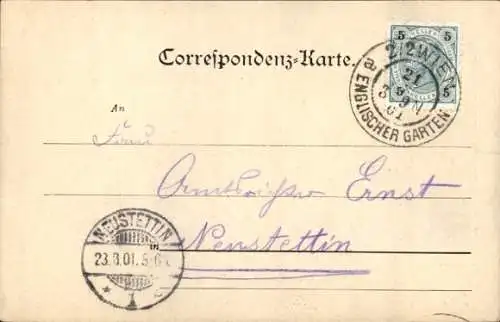 Correspondenz-Karte.
2/2 WIEN
21
3 9 N
01
a ENGLISCHER GARTEN
5 5
5 5
An
Frau
Amtsrichter Ernst
Neustettin
NEUSTETTIN
23.8.01. 5-6
* 1 c